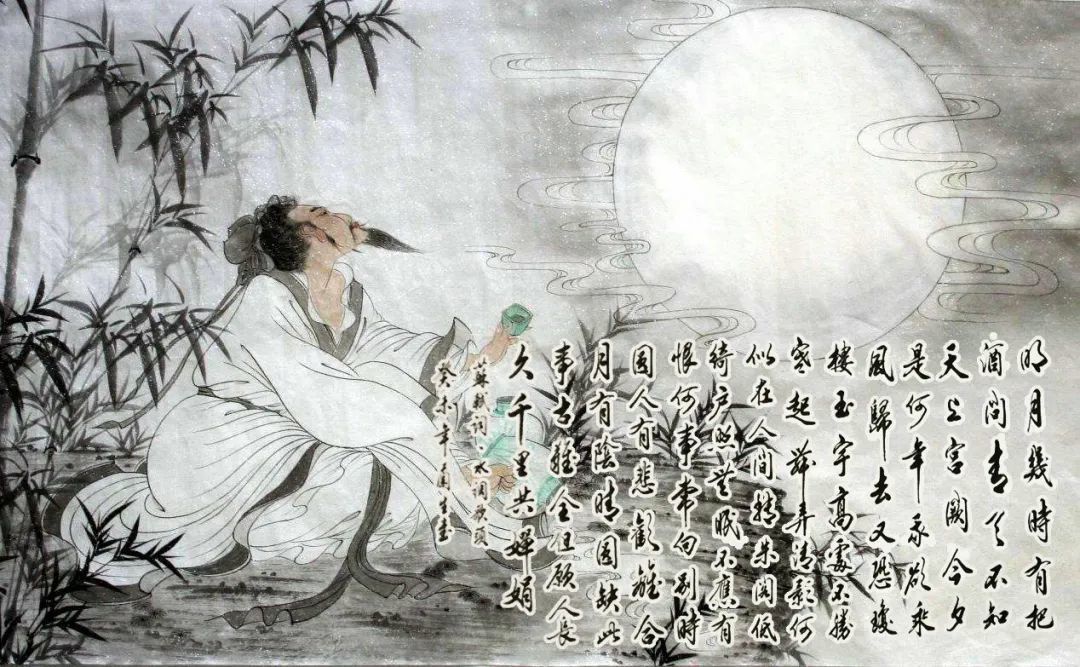 明月幾時有把
酒問青天不知
天上宮闕今夕
是何年我欲乘
風歸去又恐瓊
樓玉宇高處不勝
寒起舞弄清影何
似在人間轉朱閣低
綺戶照無眠不應有
恨何事常向別時
圓人有悲歡離合
月有陰晴圓缺此
事古難全但願人長
久千里共嬋娟
蘇軾詞·水调歌頭
癸未年